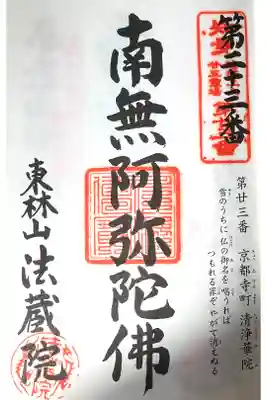 第二十三番
第廿三番 京都寺町 清浄華院
雪のうちに 仏の御名を唱うれば
つもれる罪ぞ やがて消えぬる
南無阿弥陀佛
東林山 法蔵院